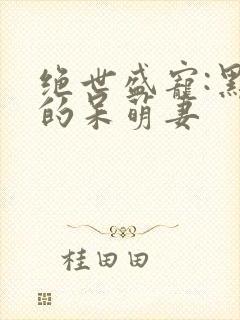 绝世盛宠:黑
的呆萌妻
桂田田